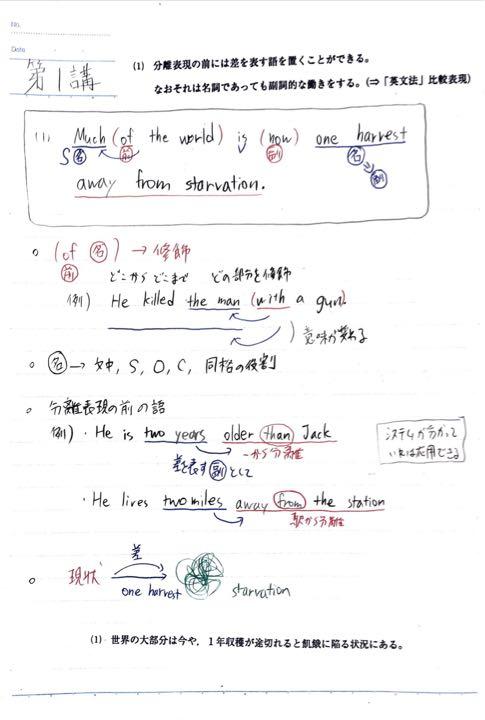 No.
Date
第1講
(1) 分離表現の前には差を表す語を置くことができる。
なおそれは名詞であっても副詞的な働きをする。(⇒「英文法」比較表現)
(1) Much (of the world) is (now) one harvest
S 名 前 V 副 名 ⇒ 副
away from starvation.
○ (of 名) → 修飾
前 どこからどこまで どの部分を修飾
例) He killed the man (with a gun).
意味が異なる
○ 名 → 文中, S, O, C, 同格の役割
○ 分離表現の前の語
例) ・He is two years older than Jack
差を表す 副 として ~から分離
システムが分かって
いれば応用できる
・He lives two miles away from the station
駅から分離
○ 現状 差 one harvest starvation
(1) 世界の大部分は今や、1年収穫が途切れると飢餓に陥る状況にある。